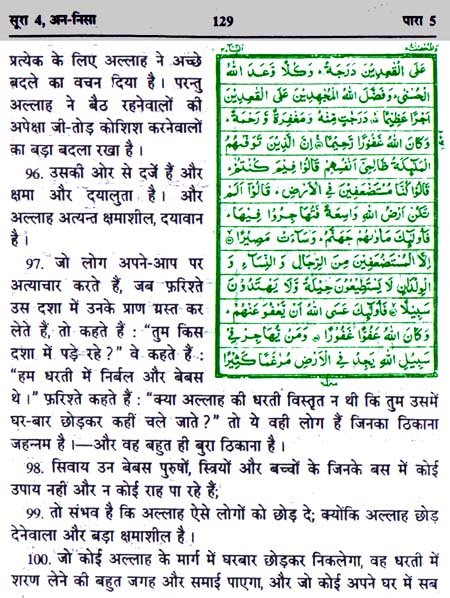 सूरा 4, अन-निसा
129
पारा 5
प्रत्येक के लिए अल्लाह ने अच्छे
बदले का वचन दिया है। परन्तु
अल्लाह ने बैठ रहनेवालों की
अपेक्षा जी-तोड़ कोशिश करनेवालों
का बड़ा बदला रखा है।
96. उसकी ओर से दर्जे हैं और
क्षमा और दयालुता है। और
अल्लाह अत्यन्त क्षमाशील, दयावान
है।
97. जो लोग अपने-आप पर
अत्याचार करते हैं, जब फ़रिश्ते
उस दशा में उनके प्राण ग्रस्त कर
लेते हैं, तो कहते हैं : "तुम किस
दशा में पड़े रहे?" वे कहते हैं :
"हम धरती में निर्बल और बेबस
عَلَى الْقٰعِدِيْنَ دَرَجَةً ؕ وَكُلًّا وَّعَدَ اللّٰهُ
الْحُسْنٰى ؕ وَفَضَّلَ اللّٰهُ الْمُجٰهِدِيْنَ عَلَى الْقٰعِدِيْنَ
اَجْرًا عَظِيْمًا ۙ دَرَجٰتٍ مِّنْهُ وَمَغْفِرَةً وَّرَحْمَةً ؕ
وَكَانَ اللّٰهُ غَفُوْرًا رَّحِيْمًا ۧ اِنَّ الَّذِيْنَ تَوَفّٰىهُمُ
الْمَلٰٓئِكَةُ ظَالِمِيْٓ اَنْفُسِهِمْ قَالُوْا فِيْمَ كُنْتُمْ ؕ
قَالُوْا كُنَّا مُسْتَضْعَفِيْنَ فِي الْاَرْضِ ؕ قَالُوْٓا اَلَمْ
تَكُنْ اَرْضُ اللّٰهِ وَاسِعَةً فَتُهَاجِرُوْا فِيْهَا ؕ
فَاُولٰٓئِكَ مَاْوٰىهُمْ جَهَنَّمُ ؕ وَسَآءَتْ مَصِيْرًا ۙ
اِلَّا الْمُسْتَضْعَفِيْنَ مِنَ الرِّجَالِ وَ النِّسَآءِ وَ
الْوِلْدَانِ لَا يَسْتَطِيْعُوْنَ حِيْلَةً وَّلَا يَهْتَدُوْنَ
سَبِيْلًا ۙ فَاُولٰٓئِكَ عَسَى اللّٰهُ اَنْ يَّعْفُوَ عَنْهُمْ ؕ
وَكَانَ اللّٰهُ عَفُوًّا غَفُوْرًا ۝ وَمَنْ يُّهَاجِرْ فِيْ
سَبِيْلِ اللّٰهِ يَجِدْ فِي الْاَرْضِ مُرٰغَمًا كَثِيْرًا
थे।" फ़रिश्ते कहते हैं : "क्या अल्लाह की धरती विस्तृत न थी कि तुम उसमें
घर-बार छोड़कर कहीं चले जाते?" तो ये वही लोग हैं जिनका ठिकाना
जहन्नम है।—और वह बहुत ही बुरा ठिकाना है।
98. सिवाय उन बेबस पुरुषों, स्त्रियों और बच्चों के जिनके बस में कोई
उपाय नहीं और न कोई राह पा रहे हैं;
99. तो संभव है कि अल्लाह ऐसे लोगों को छोड़ दे; क्योंकि अल्लाह छोड़
देनेवाला और बड़ा क्षमाशील है।
100. जो कोई अल्लाह के मार्ग में घरबार छोड़कर निकलेगा, वह धरती में
शरण लेने की बहुत जगह और समाई पाएगा, और जो कोई अपने घर में सब